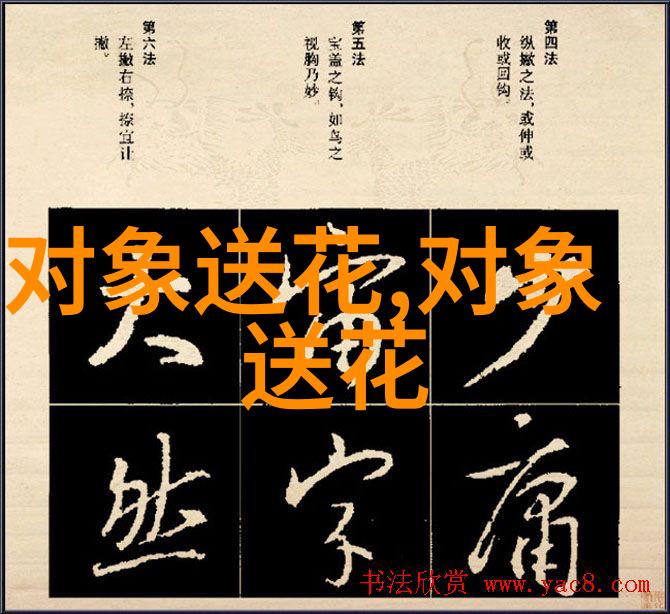 第四法
纵撇之法，或伸或
收或回钩。
第五法
宝盖之钩，如鸟之
视胸乃妙。
第六法
左撇右捺，捺宜让
撇。
对象送花,对象
送花
大
然
字
庸
书法欣赏 www.yac8.com